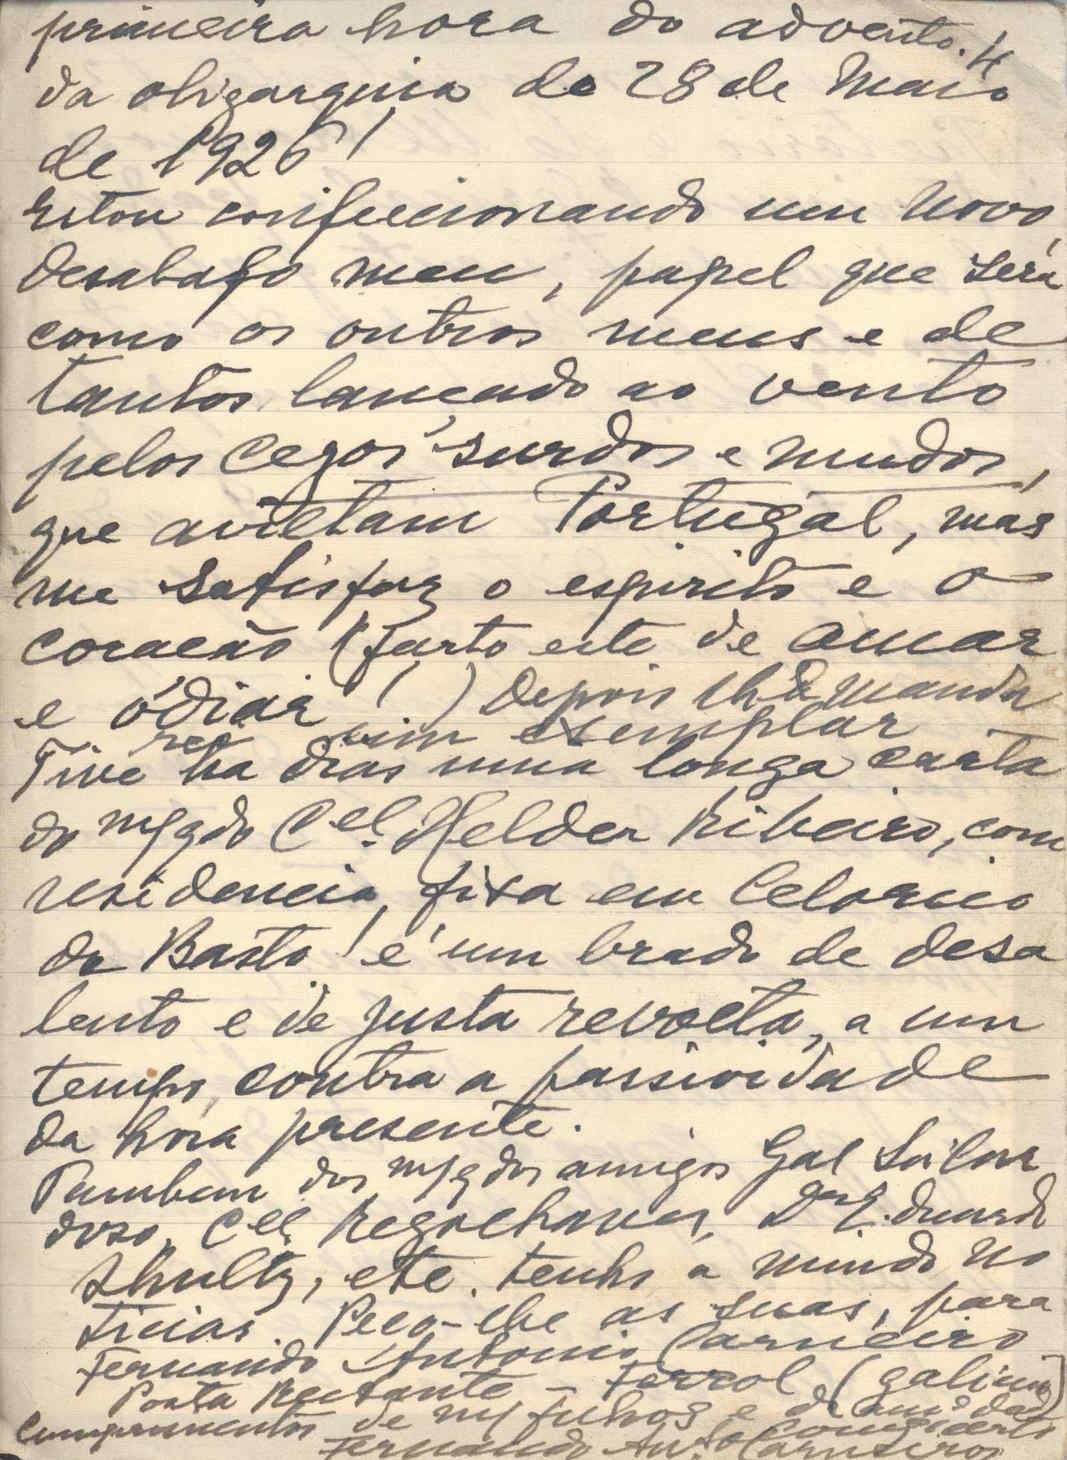 primeira hora do advento. 4
da oligarquia do 28 de Maio
de 1926!
Estou confeccionando um novo
desabafo meu, papel que será
como os outros meus e de
tantos, lançado ao vento
pelos cegos, surdos e mudos,
que infetam Portugal, mas
me satisfaz o espirito e o
coração (farto este de amar
e ódiar!) Depois lh'o mandarei
um exemplar
Tive ha dias uma longa carta
do Cel. Helder Ribeiro, com
residencia, fixa em Celorico
de Basto! é um brado de desa
lento e de justa revolta, a um
tempo, contra a passividade
da hora presente.
Tambem dos amigos Gal
doso, Cel. Rego Chaves, Eduardo
Shultz, etc. tenho a miudo no
ticias. Peço-lhe as suas, para
Fernando Antonio Carneiro
Posta Restante - Ferrol. (Galicia)
Cumprimentos de filhos e do
Fernando Anto Carneiro